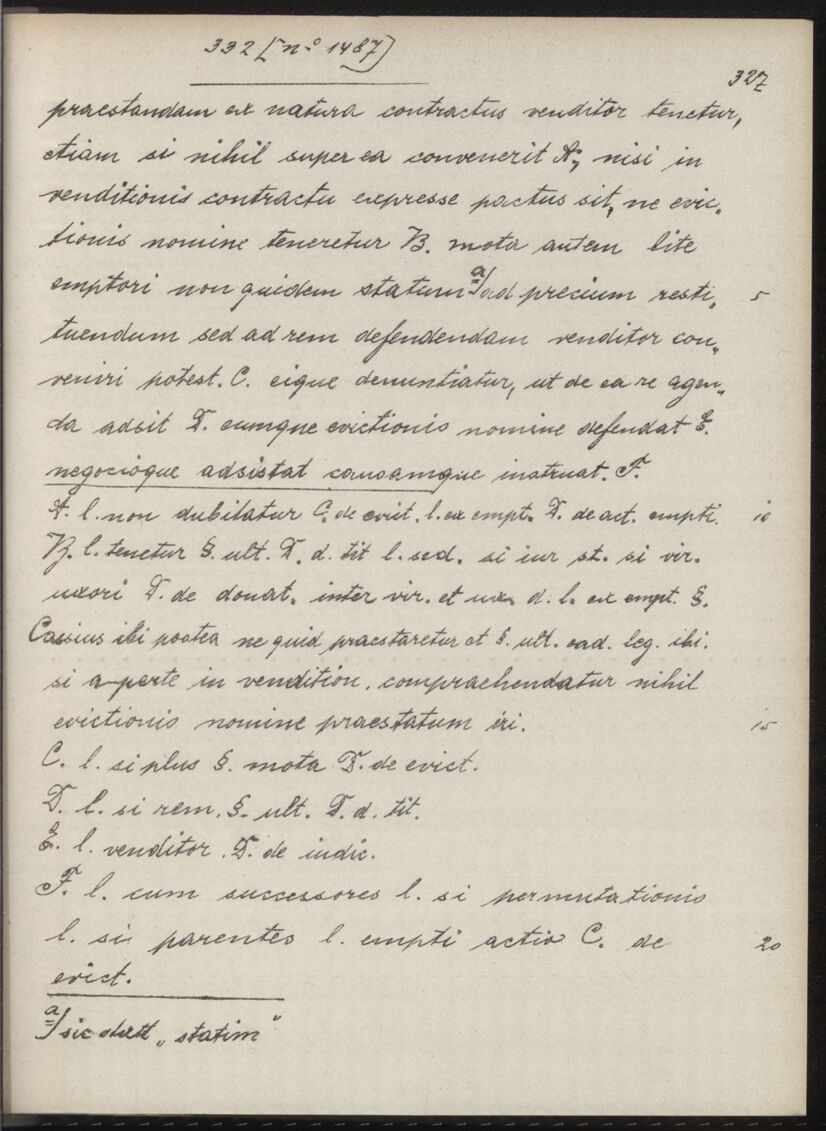 392 [n-o 1487]
327
praestandam ex natura contractus venditor tenetur,
etiam si nihil super ea convenerit A., nisi in
venditionis contractu expresse pactus sit, ne evic„
tionis nomine teneretur B. mota autem lite
emptori non quidem statum a) ad precium resti„ 5
tuendum sed ad rem defendendam venditor con„
veniri potest. C. eique denuntiatur, ut de ea re agen„
da adsit D. eumque evictionis nomine defendat E.
negocioque adsistat causamque instruat. F.
A. l. non dubitatur C. de evict. l. ex empt. D. de act. empti. 10
B. l. tenetur §. ult. D. d. tit l. sed. si iur st. si vir.
uxori D. de donat. inter vir. et ux. d. l. ex empt. §.
Cassius ibi postea ne quid praestaretur et §. ult. ead. leg. ibi.
si aperte in vendition. comprachendatur nihil
evictionis nomine praestatum iri. 15
C. l. si plus §. mota D. de evict.
D. l. si rem. §. ult. D. d. tit.
E. l. venditor. D. de iudic.
F. l. cum successores l. si permutationis
l. si parentes l. empti actio C. de 20
evict.
a) sic „statim"